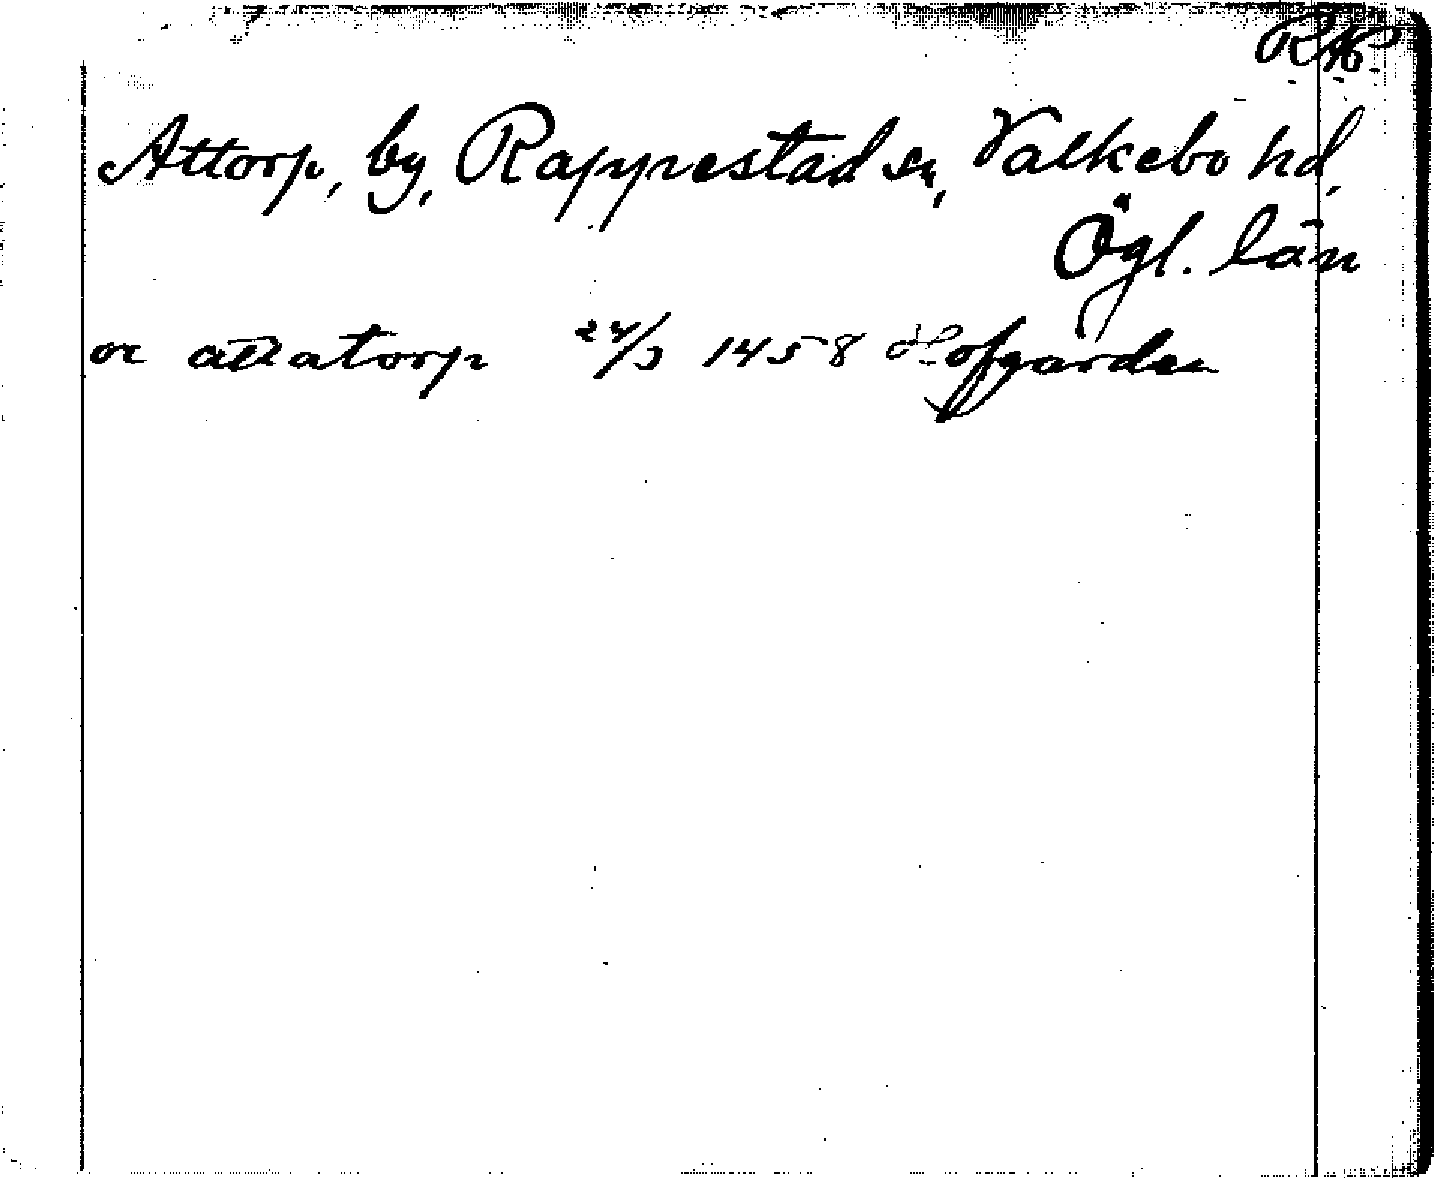 RAP.
Attorp, by, Rappestad sn, Valkebo hd,
Ögl. län
or attatorp 24/3 1458 Hofgarden